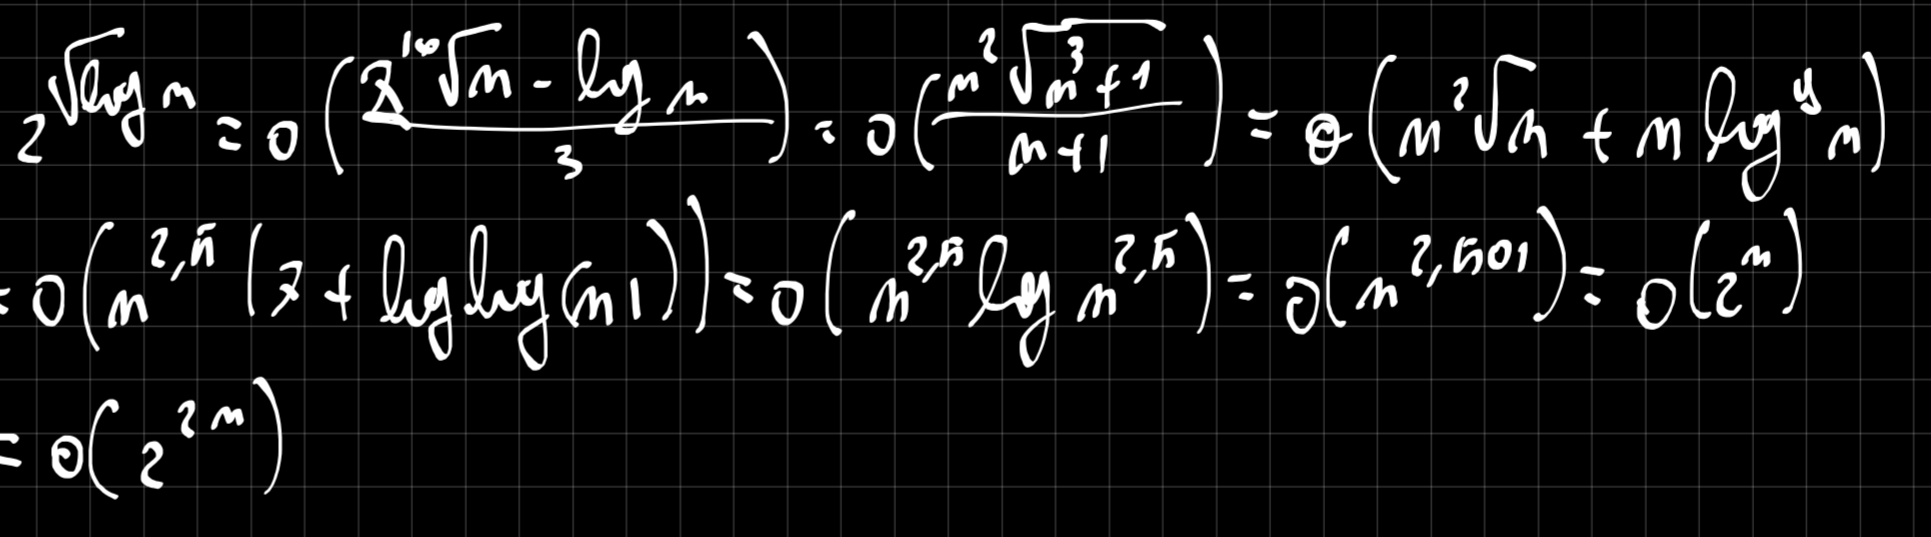 2^{\sqrt{\log n}} = o\left(\frac{2 \sqrt[10]{n} - \log n}{3}\right) = o\left(\frac{n^2 \sqrt{n^3+1}}{n+1}\right) = \Theta(n^2 \sqrt{n} + n \log^4 n)
= o(n^{2,5} (7 + \log \log (n 1))) = o(n^{2,5} \log n^{2,5}) = o(n^{2,501}) = o(2^n)
= o(2^{2n})